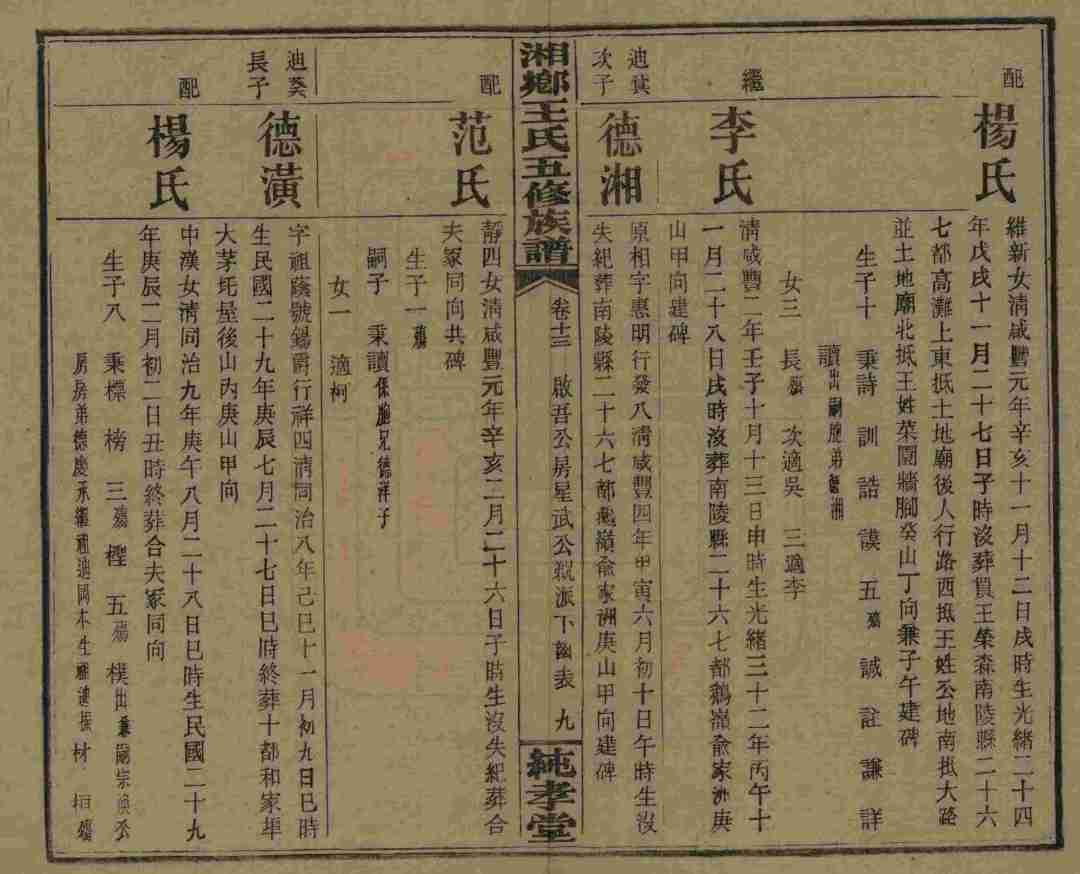 配
楊氏
維新女清咸豐元年辛亥十一月十二日戌時生光緒二十四
年戊戌十一月二十七日子時沒葬買王榮森南陵縣二十六
七都高灘上東抵土地廟後人行路西抵王姓公地南抵大路
並土地廟北抵王姓菜園牆腳癸山丁向兼子午建碑
生子十 秉詩 訓 誥 謨 五殤 誠 詮 謙 詳
讀出嗣胞弟德湘
女三 長殤 次適吳 三適李
繼
李氏
清咸豐二年壬子十月十三日申時生光緒三十二年丙午十
一月二十八日戌時沒葬南陵縣二十六七都鵝嶺俞家洲庚
山甲向建碑
迪蓂
次子
德湘
原相字惠明行發八清咸豐四年甲寅六月初十日午時生沒
失紀葬南陵縣二十六七都鵝嶺俞家洲庚山甲向建碑
湘鄉王氏五修族譜
卷十三 啟吾公房星武公派下齒表 九
純孝堂
配
范氏
靜四女清咸豐元年辛亥二月二十六日子時生沒失紀葬合
夫冢同向共碑
生子一殤
嗣子 秉讀係胞兄德祥子
女一 適柯
迪葵
長子
德潢
字祖蔭號錫爵行祥四清同治八年己巳十一月初九日巳時
生民國二十九年庚辰七月二十七日巳時終葬十都和家埲
大茅坵屋後山丙庚山甲向
配
楊氏
中漢女清同治九年庚午八月二十八日巳時生民國二十九
年庚辰二月初二日丑時終葬合夫冢同向
生子八 秉標 榜 三殤 樫 五殤 樸出兼嗣宗煥公
房房弟德慶承繼 材 桓殤